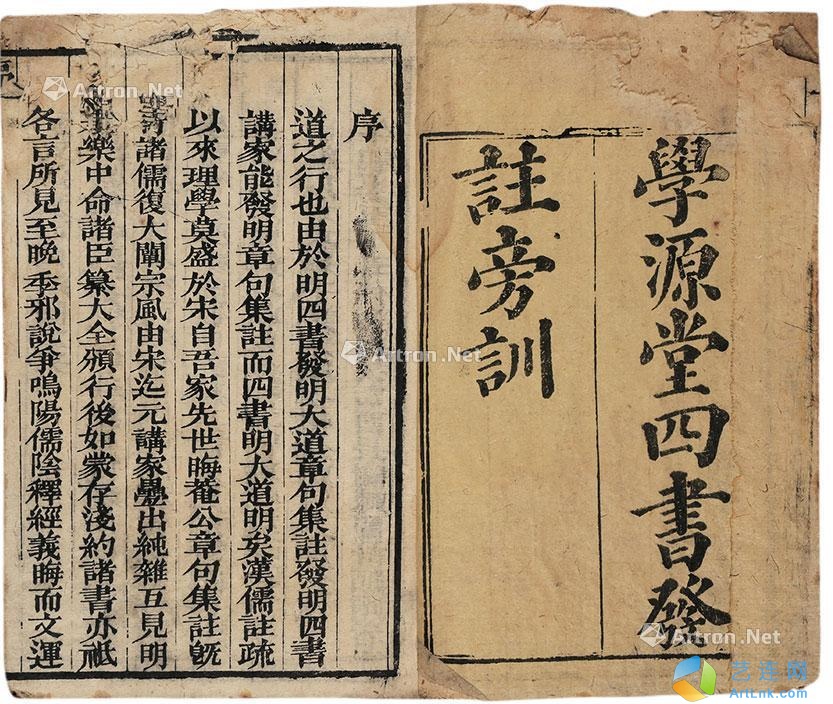 學源堂四書發
註旁訓
序
道之行也由於明四書發明大道章句集註發明四書
講家能發明章句集註而四書明大道明矣漢儒註疏
以來理學莫盛於宋自吾家先世晦菴公章句集註旣
諸儒復大闡宗風由宋迄元講家疊出純雜互見明
樂中命諸臣纂大全頒行後如蒙存淺約諸書亦祇
各言所見至晚季邪說爭鳴陽儒陰釋經義晦而文運
Artron.Net
Artron.Net
Artron.Net
Artron.Net
Artron.Net
艺连网
ArtLnk.com